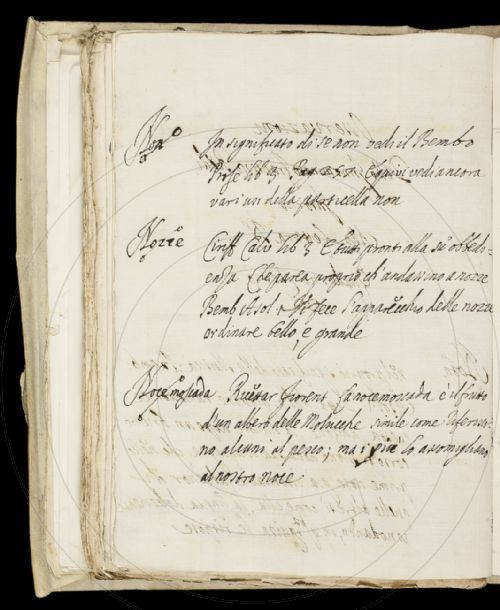 Non In significato di se non vedi il Bembo
Prose lib 3 Pag 257 E quivi vedi ancora
varii usi della particella non
Nozze Ciriff Calv lib 3 E tutti pronti alla su' obbedi=
enza Che parea proprio ch' andassino a nozze
Bemb Asol 1 fece l'apparecchio delle nozze
ordinare bello, e grande
Noce moscada Ricettar fiorent La noce moscada è il frutto
d'un albero delle Molucche simile come riferisco=
no alcuni al pesco; ma i più lo assomigliano
al nostro noce